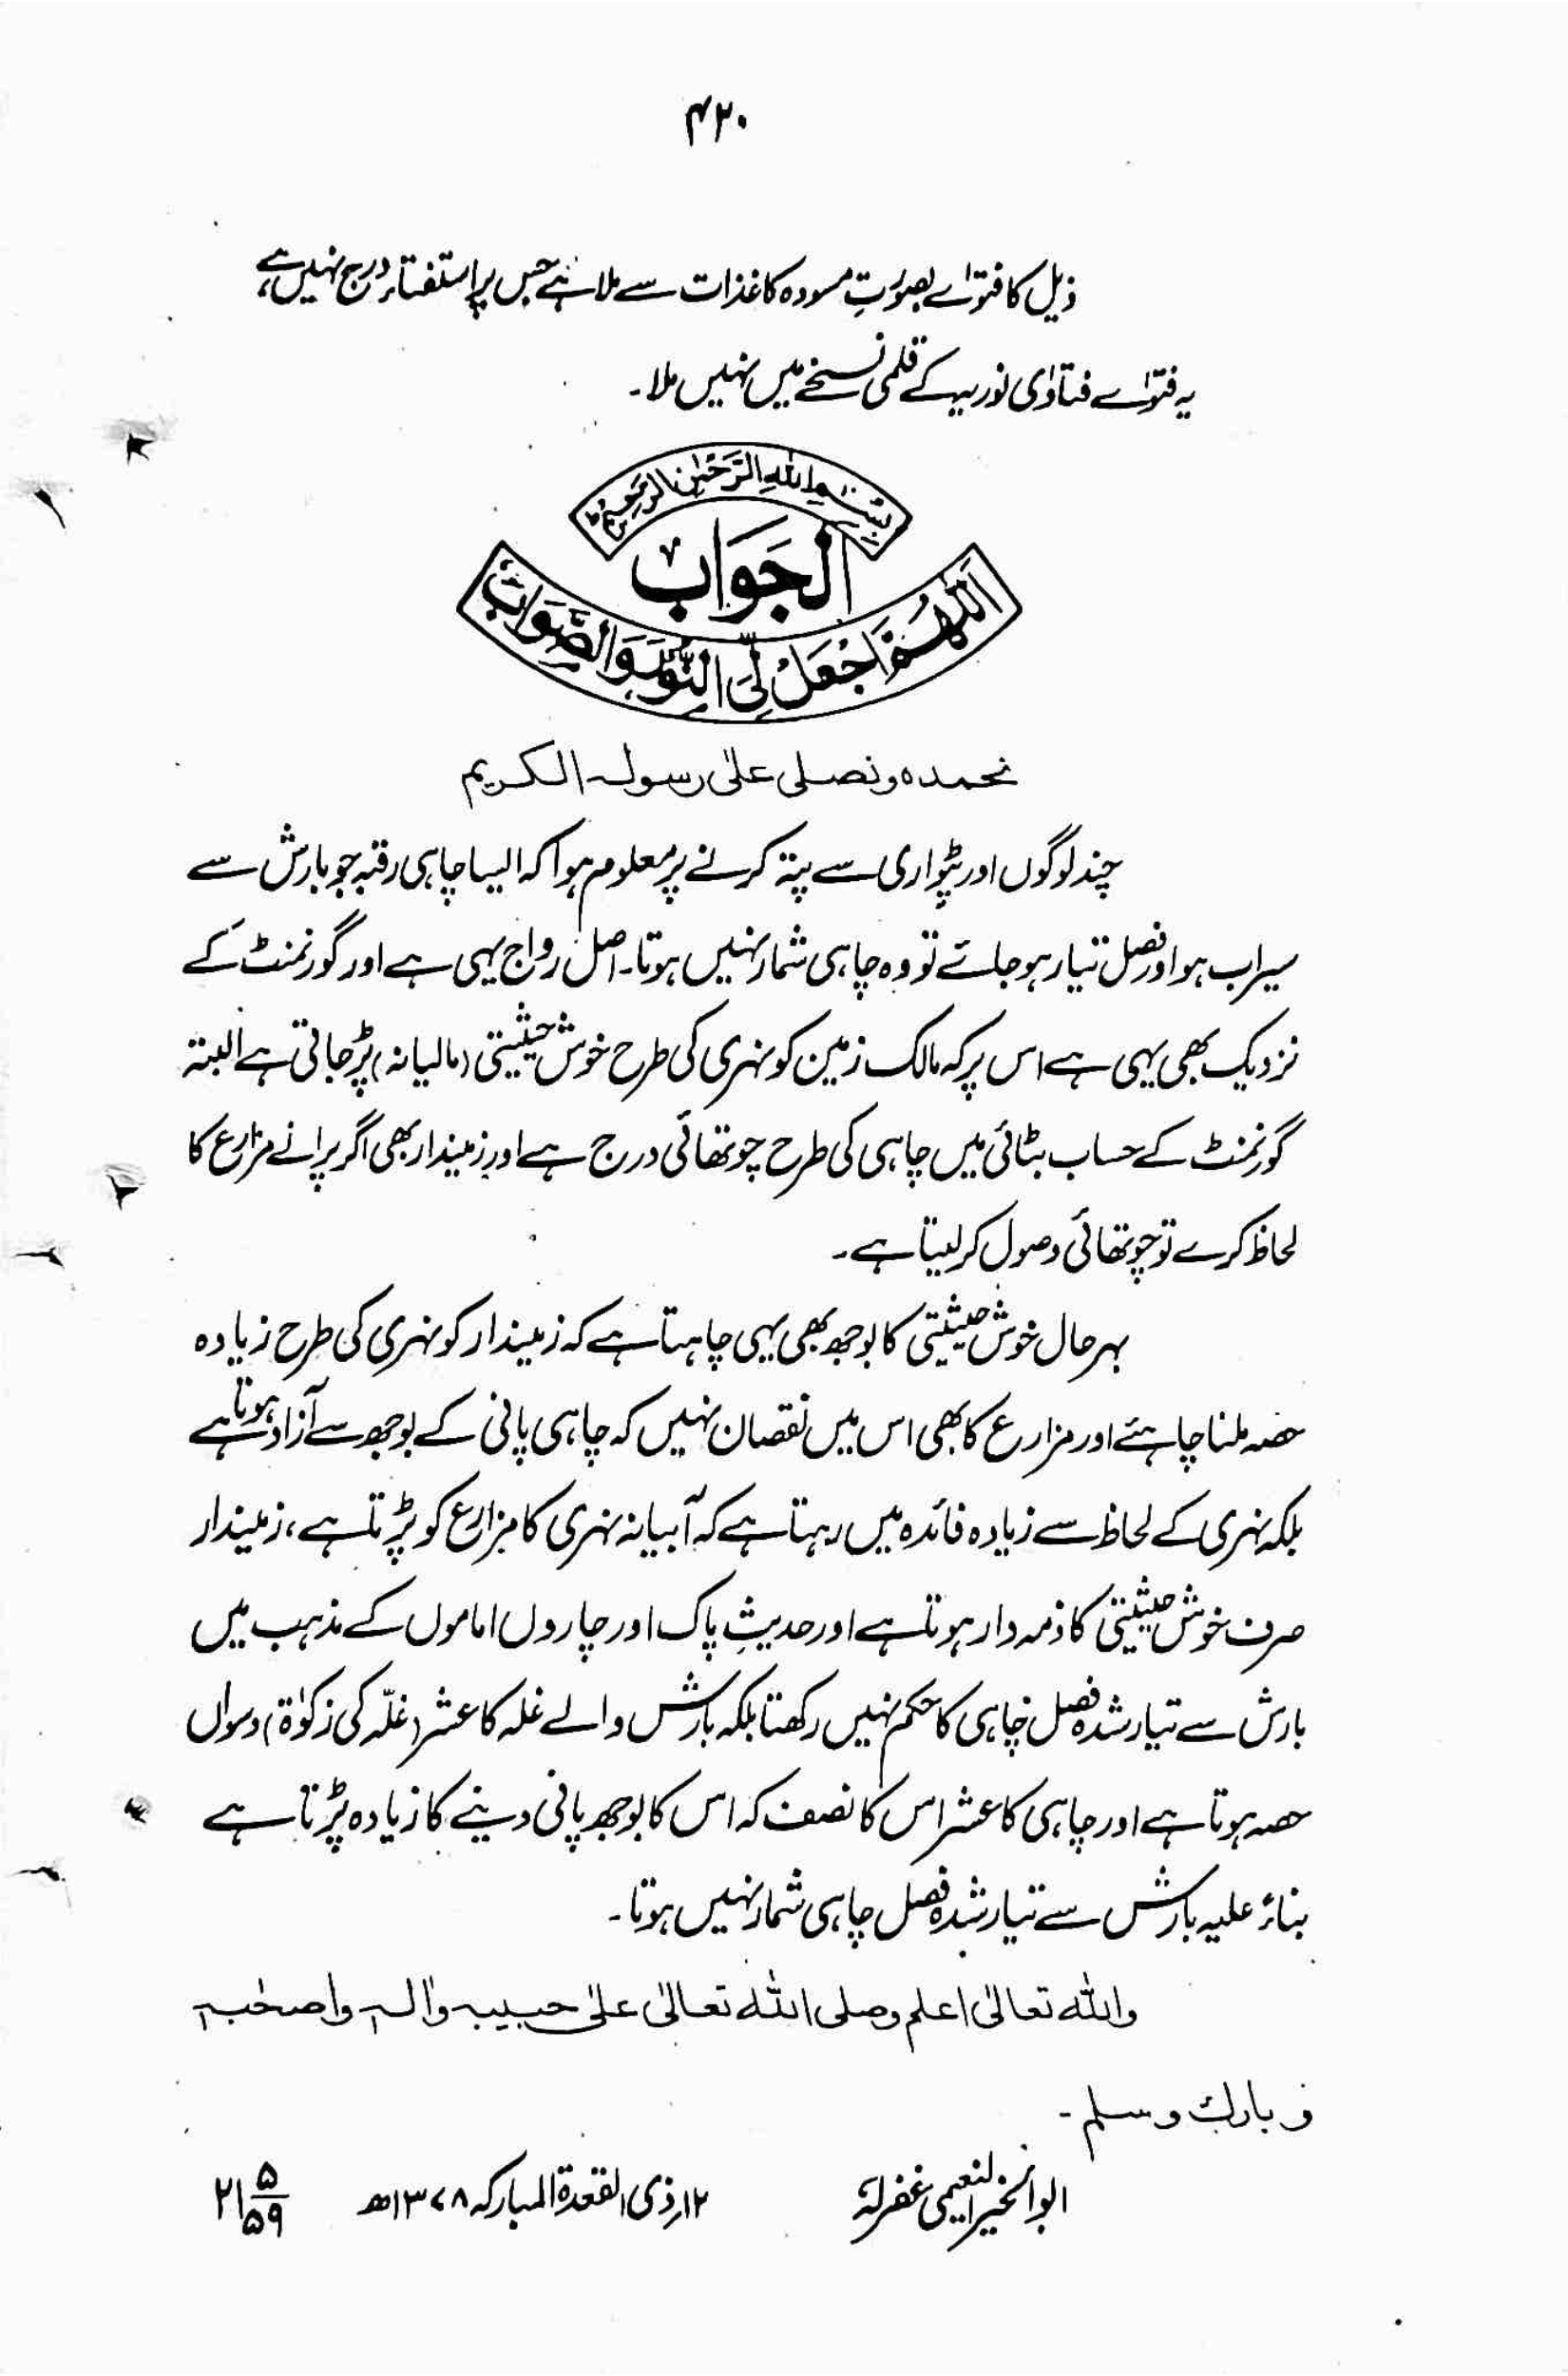 ۴۲۰
ذیل کا فتوٰے بصورتِ مسودہ کاغذات سے ملا ہے جس پر استفتاء درج نہیں ہے،
یہ فتوٰے فتاوٰی نوریہ کے قلمی نسخے میں نہیں ملا۔
بِسْمِ اللهِ الرَّحْمٰنِ الرَّحِيْمِ ط
الجَوَابُ
اَللّٰهُمَّ اجْعَلْ لِّیَ النُّوْرَ وَالصَّوَابَ
نحمده ونصلی علیٰ رسولہ الکریم
چند لوگوں اور پٹواری سے پتہ کرنے پر معلوم ہوا کہ ایسا چاہی رقبہ جو بارش سے
سیراب ہو اور فصل تیار ہو جائے تو وہ چاہی شمار نہیں ہوتا۔ اصل رواج یہی ہے اور گورنمنٹ کے
نزدیک بھی یہی ہے اس پر کہ مالک زمین کو نہری کی طرح خوش حیثیتی (مالیانہ) پڑ جاتی ہے البتہ
گورنمنٹ کے حساب بٹائی میں چاہی کی طرح چوتھائی درج ہے اور زمیندار بھی اگر پرانے مزارع کا
لحاظ کرے تو چوتھائی وصول کر لیتا ہے۔
بہر حال خوش حیثیتی کا بوجھ بھی یہی چاہتا ہے کہ زمیندار کو نہری کی طرح زیادہ
حصہ ملنا چاہئے اور مزارع کا بھی اس میں نقصان نہیں کہ چاہی پانی کے بوجھ سے آزاد ہوتا ہے
بلکہ نہری کے لحاظ سے زیادہ فائدہ میں رہتا ہے کہ آبیانہ نہری کا مزارع کو پڑتا ہے، زمیندار
صرف خوش حیثیتی کا ذمہ دار ہوتا ہے اور حدیثِ پاک اور چاروں اماموں کے مذہب میں
بارش سے تیار شدہ فصل چاہی کا حکم نہیں رکھتا بلکہ بارش والے غلہ کا عشر (غلّہ کی زکوٰۃ) دسواں
حصہ ہوتا ہے اور چاہی کا عشر اس کا نصف کہ اس کا بوجھ پانی دینے کا زیادہ پڑتا ہے
بناءً علیہ بارش سے تیار شدہ فصل چاہی شمار نہیں ہوتا۔
واللہ تعالیٰ اعلم وصلی اللہ تعالیٰ علیٰ حبیبہ واٰلہ واصحٰبہ
و بارك وسلم۔
ابوالخیر النعیمی غفرلہٗ ۱۲؍ذی القعدۃ المبارکہ ۱۳۷۸ھ ۲۱/۵/۵۹